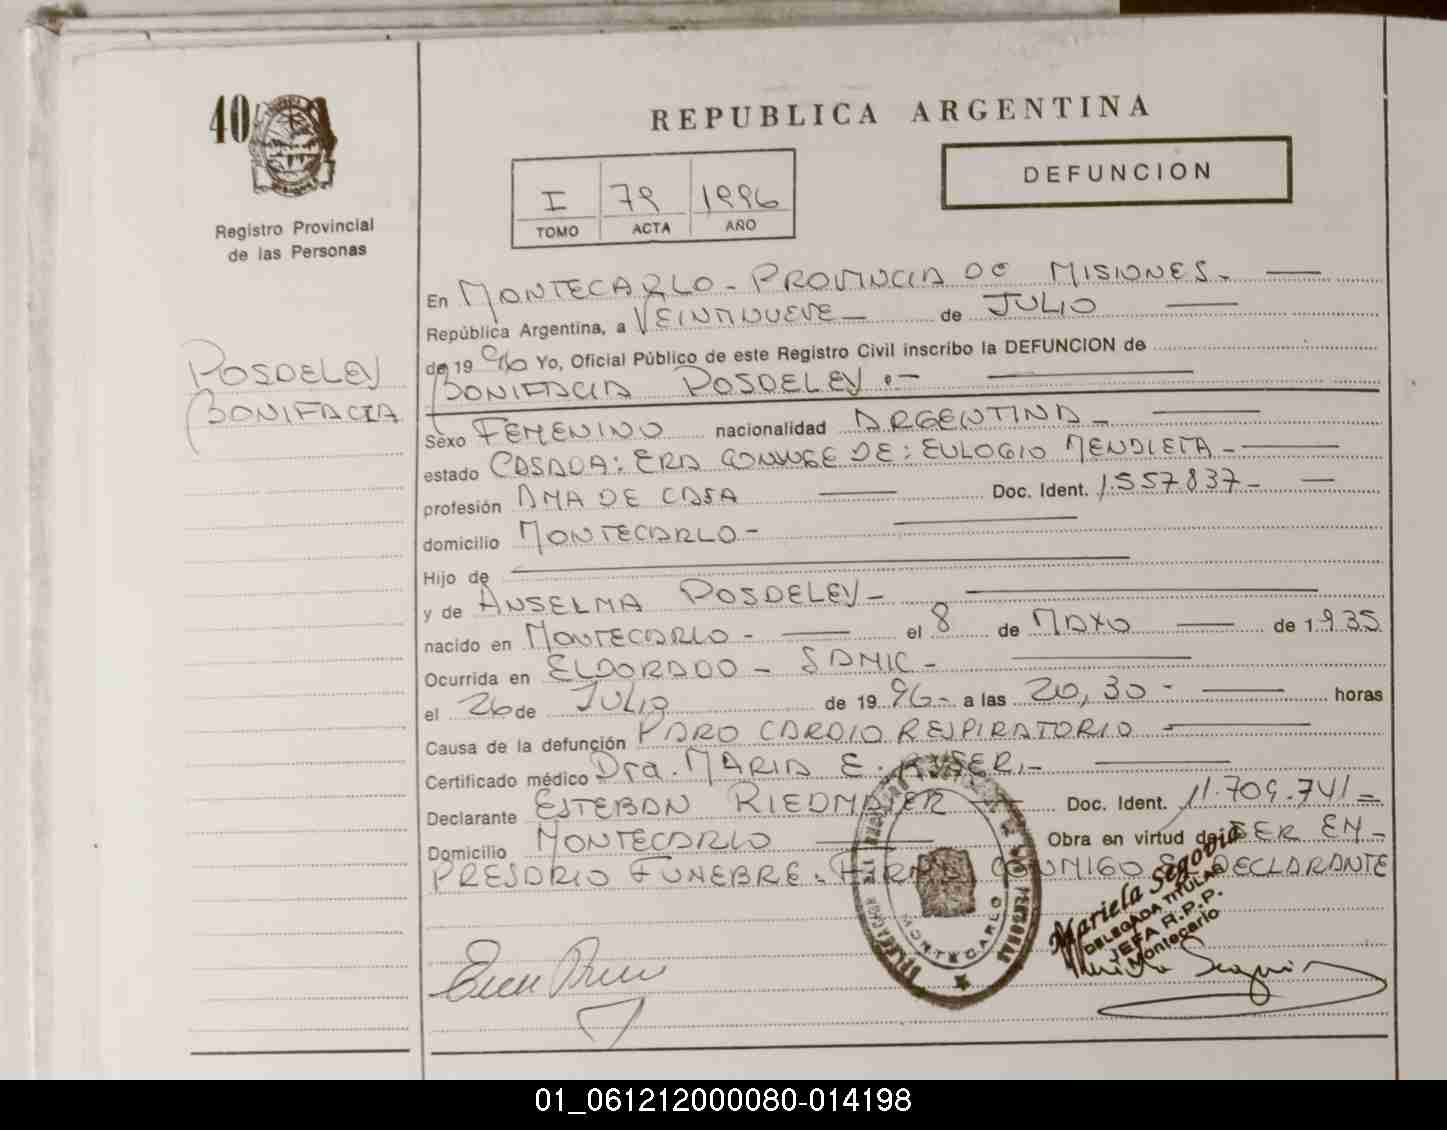 40
REPUBLICA ARGENTINA
DEFUNCION
I 79 1996
TOMO ACTA AÑO
Registro Provincial
de las Personas
POSDELEY
BONIFACIA
En MONTECARLO - PROVINCIA DE MISIONES -
República Argentina, a VEINTINUEVE - de JULIO
de 19 96 Yo, Oficial Público de este Registro Civil inscribo la DEFUNCION de
BONIFACIA POSDELEY.-
Sexo FEMENINO nacionalidad ARGENTINA -
estado CASADA: ERA CONYUGE DE: EULOGIO MENDIETA -
profesión AMA DE CASA Doc. Ident. 1.557837-
domicilio MONTECARLO -
Hijo de
y de ANSELMA POSDELEY -
nacido en MONTECARLO - el 8 de MAYO de 1.935
Ocurrida en ELDORADO - SAMIC -
el 26 de JULIO de 19 96- a las 20,30 - horas
Causa de la defunción PARO CARDIO RESPIRATORIO -
Certificado médico Dra. MARIA E.
Declarante ESTEBAN RIEDMAIER Doc. Ident. 11.709.741-
Domicilio MONTECARLO Obra en virtud de SER EM-
PRESARIO FUNEBRE. FIRMA CONMIGO EL DECLARANTE
DELEGACION
MONTECARLO
Mariela Segovia
DELEGADA TITULAR
JEFA R.P.P.
Montecarlo
01_061212000080-014198